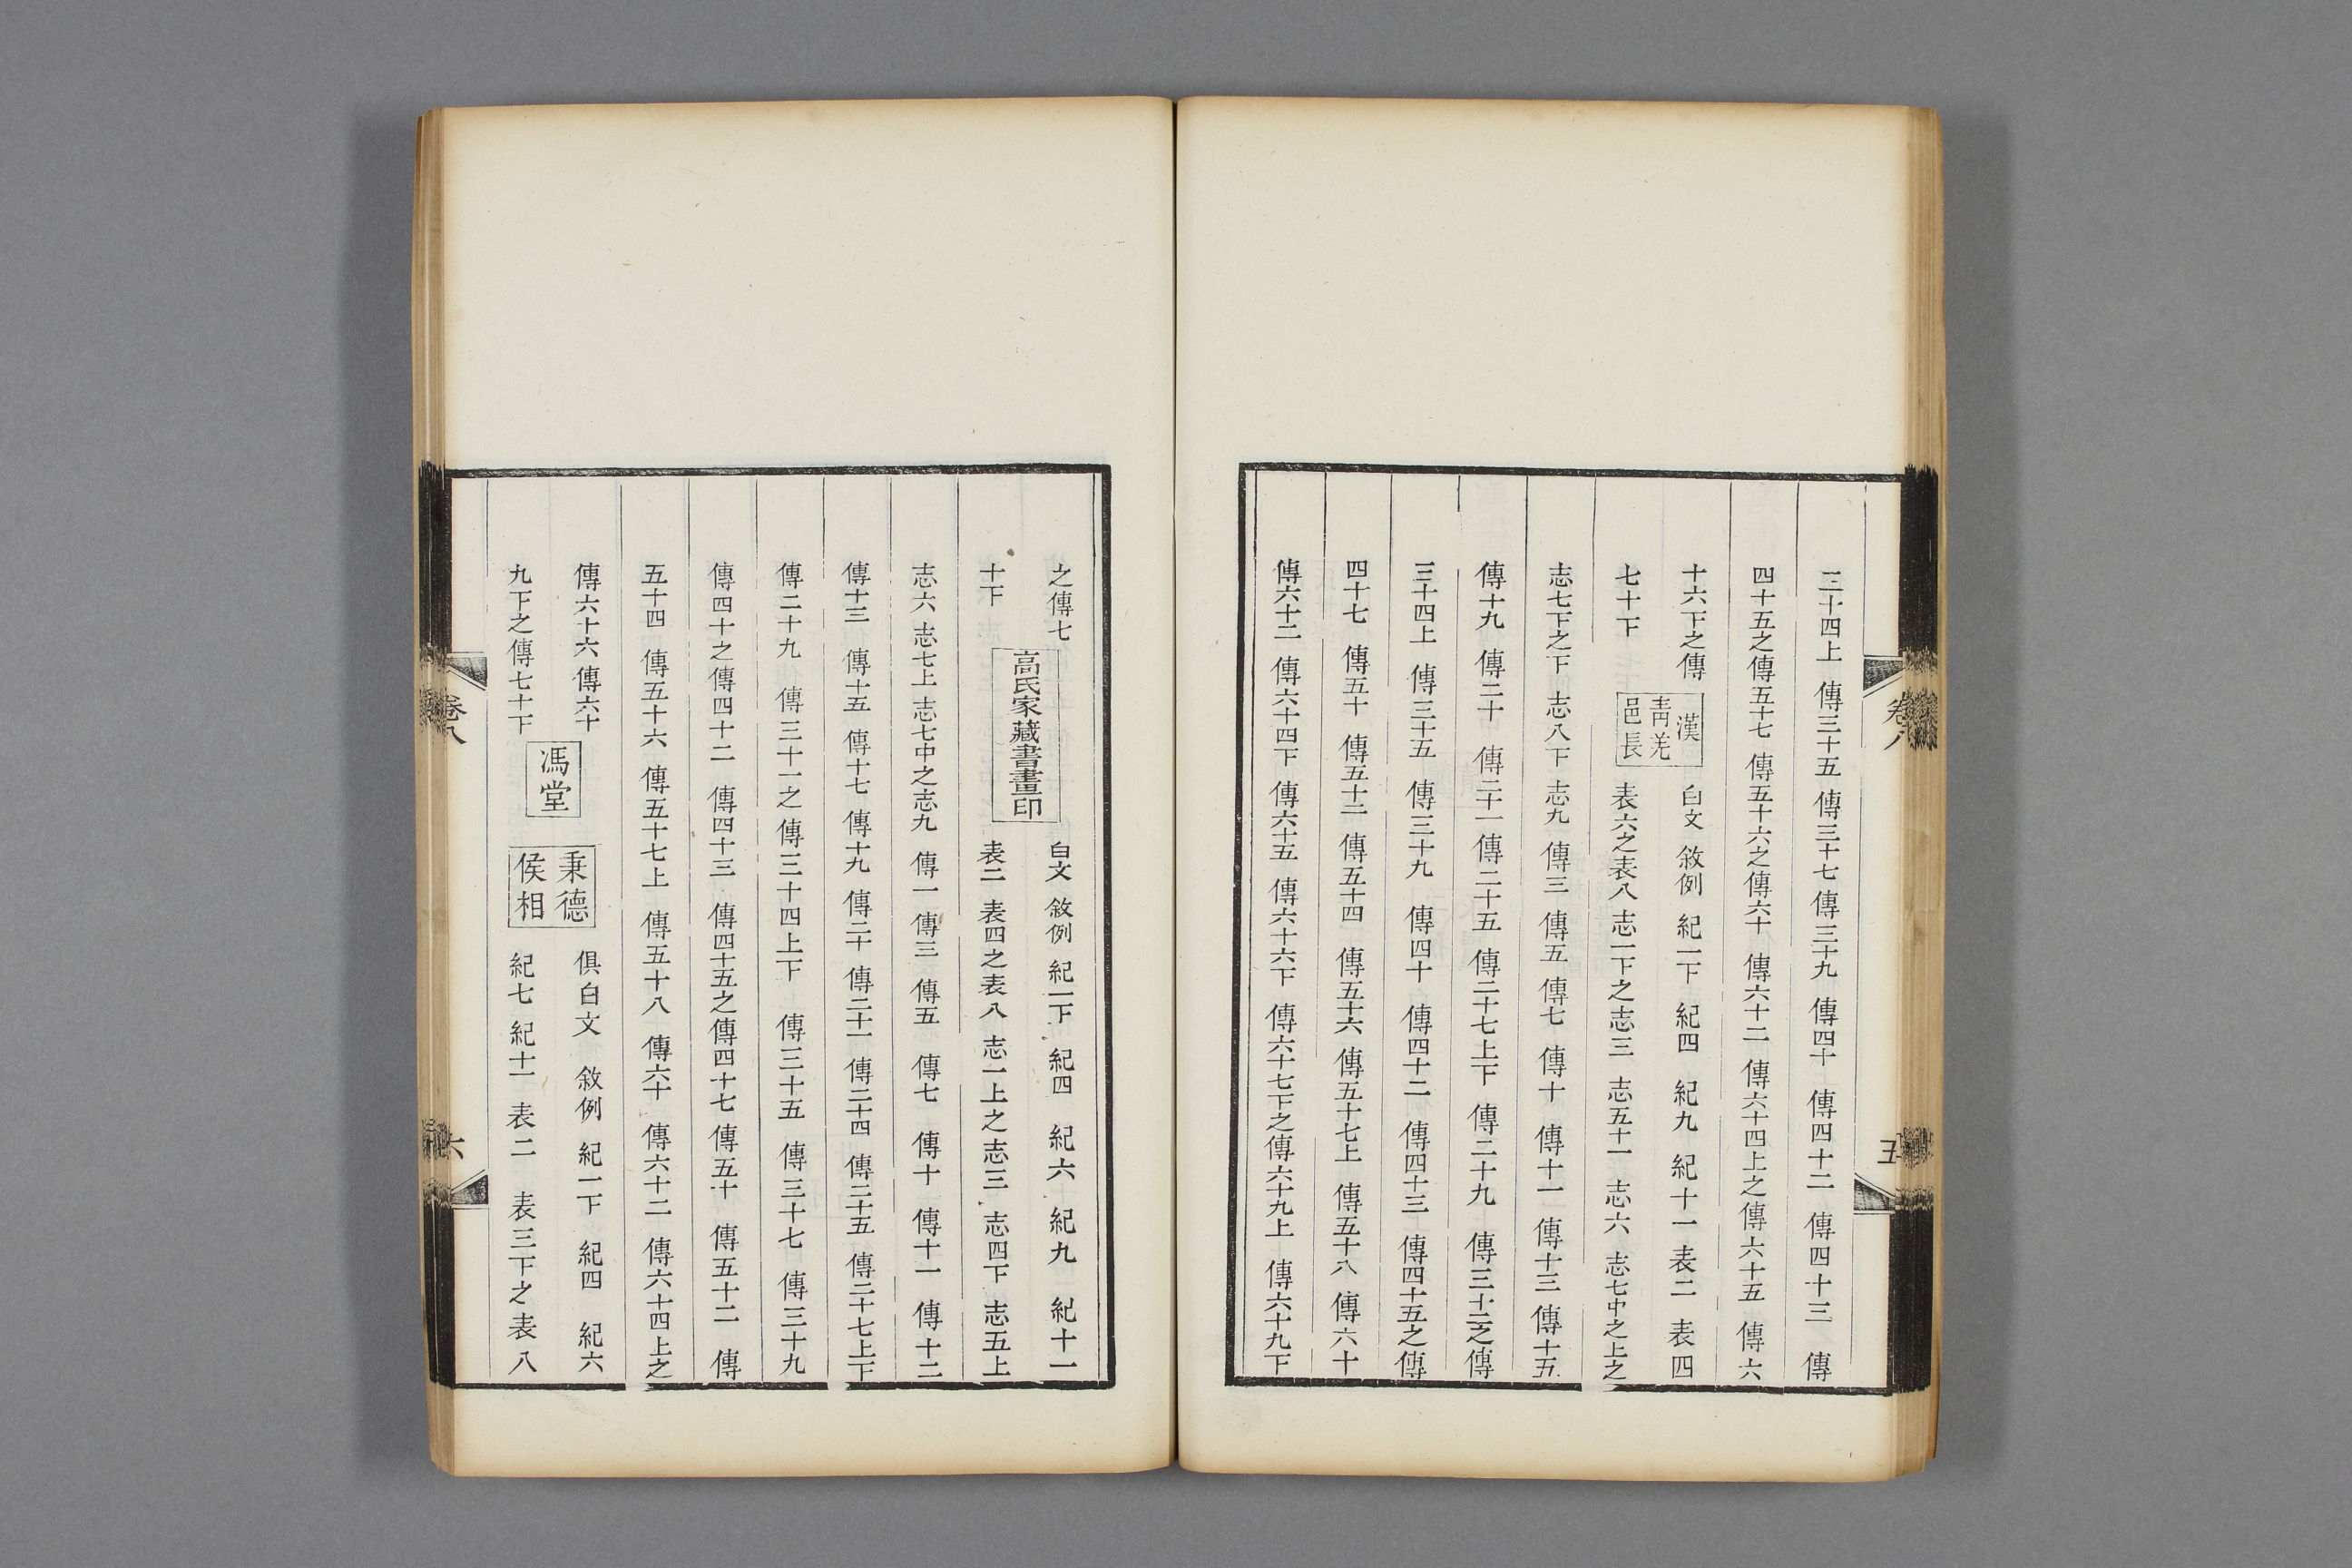 三十四上 傳三十五 傳三十七 傳三十九 傳四十 傳四十二 傳四十三 傳
四十五之傳五十七 傳五十六之傳六十 傳六十二 傳六十四上之傳六十五 傳六
十六下之傳
七十下
漢
青羌
邑長
白文 敘例 紀一下 紀四 紀九 紀十一 表二 表四
表六之表八 志一下之志三 志五十一 志六 志七中之上之
志七下之下 志八下 志九 傳三 傳五 傳七 傳十 傳十一 傳十三 傳十五
傳十九 傳二十 傳二十一 傳二十五 傳二十七上下 傳二十九 傳三十三之傳
三十四上 傳三十五 傳三十九 傳四十 傳四十二 傳四十三 傳四十五之傳
四十七 傳五十 傳五十二 傳五十四 傳五十六 傳五十七上 傳五十八 傳六十
傳六十二 傳六十四下 傳六十五 傳六十六下 傳六十七下之傳六十九上 傳六十九下
卷八
五
之傳七
十下
高氏家藏書畫印
白文 敘例 紀一下 紀四 紀六 紀九 紀十一
表二 表四之表八 志一上之志三 志四下 志五上
志六 志七上 志七中之志九 傳一 傳三 傳五 傳七 傳十 傳十一 傳十二
傳十三 傳十五 傳十七 傳十九 傳二十 傳二十一 傳二十四 傳二十五 傳二十七上下
傳二十九 傳三十一之傳三十四上下 傳三十五 傳三十七 傳三十九
傳四十之傳四十二 傳四十三 傳四十五之傳四十七 傳五十 傳五十二 傳
五十四 傳五十六 傳五十七上 傳五十八 傳六十 傳六十二 傳六十四上之
傳六十六 傳六十
九下之傳七十下
馮堂
秉德
侯相
俱白文 敘例 紀一下 紀四 紀六
紀七 紀十一 表二 表三下之表八
卷八
六